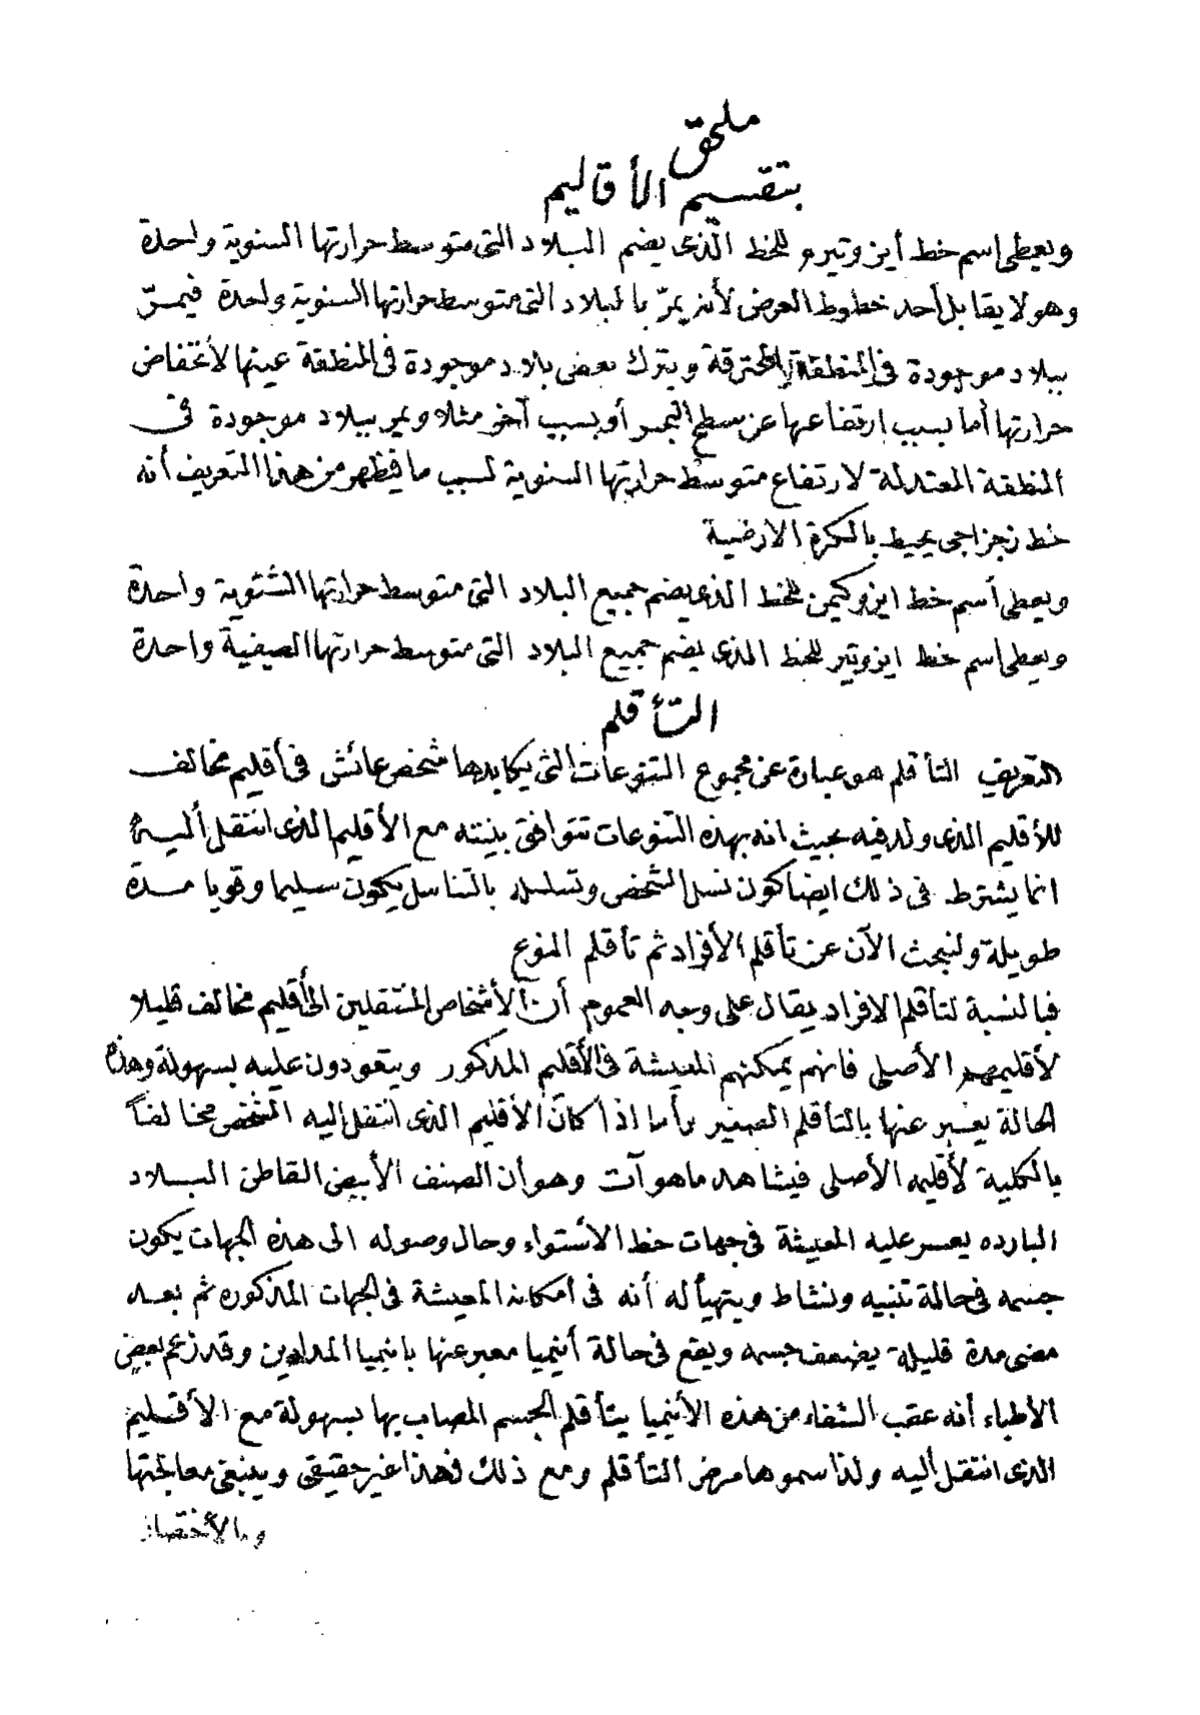 ملحق
بتقسيم الأقاليم
ويعطى اسم خط أيزوتيرم للخط الّذى يضم البلاد التى متوسط حرارتها السنوية واحدة
وهو لا يقابل أحد خطوط العرض لأنه يمرّ بالبلاد التى متوسط حرارتها السنوية واحدة فيمرّ
ببلاد موجودة فى المنطقة المحترقة ويترك بعض بلاد موجودة فى المنطقة عينها لأنخفاض
حرارتها أما بسبب ارتفاعها عن سطح البحر أو بسبب آخر مثلا ويمر ببلاد موجودة فى
المنطقة المعتدلة لارتفاع متوسط حرارتها السنوية لسبب ما فيظهر من هذا التعريف أنه
خط زجزاجى يحيط بالكرة الارضية
ويعطى أسم خط ايزوكيمن للخط الذى يضم جميع البلاد التى متوسط حرارتها الشتوية واحدة
ويعطى اسم خط ايزوتير للخط الذى يضم جميع البلاد التى متوسط حرارتها الصيفية واحدة
التأقلم
التعريف التأقلم هو عبارة عن مجموع التنوعات التى يكابدها شخص عائش فى أقليم مخالف
للأقليم الذى ولد فيه بحيث انه بهذه التنوعات تتوافق بنيته مع الأقليم الذى انتقل أليه
انما يشترط فى ذلك ايضا كون نسل الشخص وتسلسله بالتناسل يكون سليما وقويا مدة
طويلة ولنبحث الآن عن تأقلم الأفراد ثم تأقلم النوع
فبالنسبة لتأقلم الافراد يقال على وجه العموم أن الأشخاص المنتقلين الى أقليم مخالف قليلا
لأقليمهم الأصلى فانهم يمكنهم المعيشة فى الأقليم المذكور ويتعودون عليه بسهولة وهذه
الحالة يعبر عنها بالتأقلم الصغير وأما اذا كان الأقليم الذى انتقل اليه الشخص مخالفاً
بالكلية لأقليمه الأصلى فيشاهد ما هو آت وهو أن الصنف الأبيض القاطن البلاد
البارده يعسر عليه المعيشة فى جهات خط الاستواء وحال وصوله الى هذه الجهات يكون
جسمه فى حالة تنبيه ونشاط ويتهيأ له أنه فى أمكانه المعيشة فى الجهات المذكوره ثم بعد
مضى مدة قليلة يضعف جسمه ويقع فى حالة أنيميا معبر عنها بانيميا المدارين وقد زعم بعض
الأطباء أنه عقب الشفاء من هذه الأنيميا يتأقلم الجسم المصاب بها بسهولة مع الأقليم
الذى انتقل أليه ولذا سموها مرض التأقلم ومع ذلك فهذا غير حقيقى وينبغى معالجتها